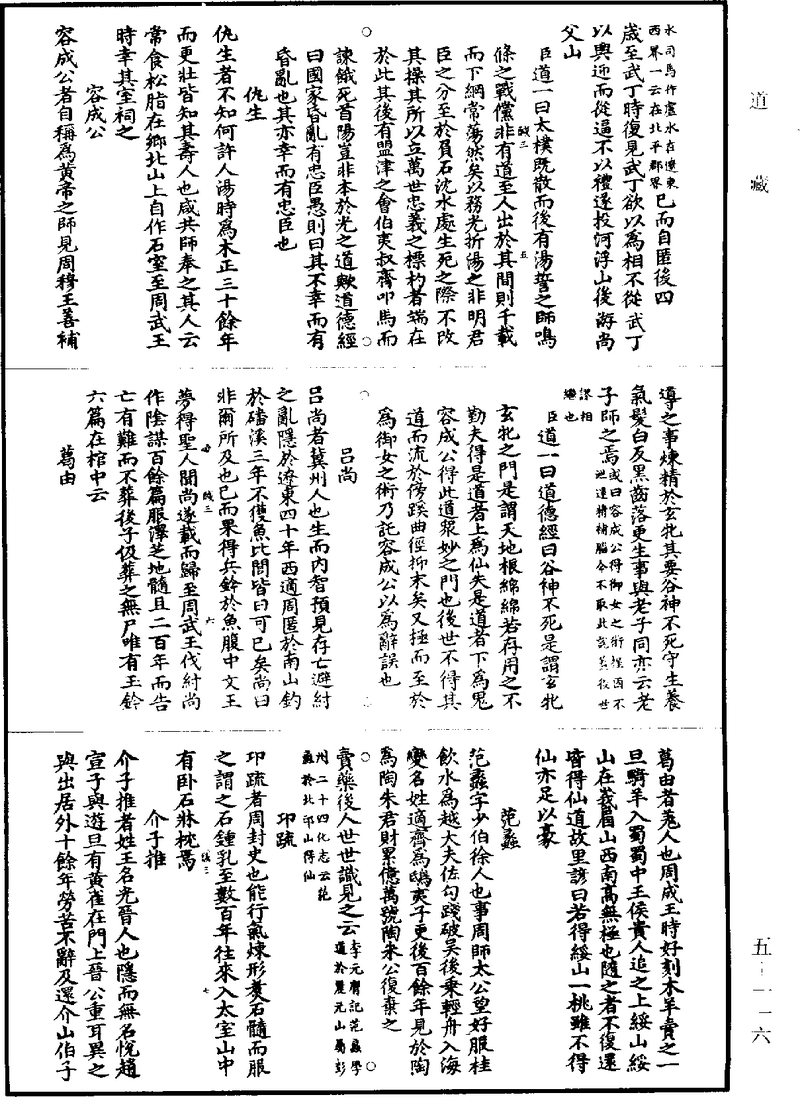 道藏
水司馬作盧水在遼東
西界一云在北平郡界
已而自匿後四
歲至武丁時復見武丁欲以為相不從武丁
以輿迎而從逼不以禮遂投河浮山後游尚
父山
臣道一曰太樸既散而後有湯誓之師鳴
條之戰儻非有道至人出於其間則千載
而下綱常蕩然矣以務光折湯之非明君
臣之分至於負石沈水處生死之際不改
其操其所以立萬世忠義之標杓者端在
於此其後有盟津之會伯夷叔齊叩馬而
諫餓死首陽豈非本於光之道歟道德經
曰國家昏亂有忠臣愚則曰其不幸而有
昏亂也其亦幸而有忠臣也
仇生
仇生者不知何許人湯時為木正三十餘年
而更壯皆知其壽人也咸共師奉之其人云
常食松脂在鄉北山上自作石室至周武王
時幸其室祠之
容成公
容成公者自稱為黃帝之師見周穆王善補
導之事煉精於玄牝其要谷神不死守生養
氣髮白反黑齒落更生事與老子同亦云老
子師之焉
或曰容成公得御女之術握固不
泄還精補腦今不取此說蓋後世
謬相
繼也
臣道一曰道德經曰谷神不死是謂玄牝
玄牝之門是謂天地根綿綿若存用之不
勤夫得是道者上為仙失是道者下為鬼
容成公得此道眾妙之門也後世不得其
道而流於傍蹊曲徑抑末矣又極而至於
為御女之術乃託容成公以為辭誤也
呂尚
呂尚者冀州人也生而內智預見存亡避紂
之亂隱於遼東四十年西適周匿於南山釣
於磻溪三年不獲魚比閭皆曰可已矣尚曰
非爾所及也已而果得兵鈐於魚腹中文王
夢得聖人聞尚遂載而歸至周武王伐紂尚
作陰謀百餘篇服澤芝地髓且二百年而告
亡有難而不葬後子伋葬之無尸唯有玉鈐
六篇在棺中云
葛由
葛由者羌人也周成王時好刻木羊賣之一
旦騎羊入蜀蜀中王侯貴人追之上綏山綏
山在峩眉山西南高無極也隨之者不復還
皆得仙道故里諺曰若得綏山一桃雖不得
仙亦足以豪
范蠡
范蠡字少伯徐人也事周師太公望好服桂
飲水為越大夫佐勾踐破吳後乘輕舟入海
變名姓適齊為鴟夷子更後百餘年見於陶
為陶朱君財累億萬號陶朱公復棄之
賣藥後人世世識見之云
李元膺記范蠡學
道於麗元山屬彭
州二十四化志云范
蠡於北邙山得仙
邛疏
邛疏者周封史也能行氣煉形煑石髓而服
之謂之石鍾乳至數百年往來入太室山中
有臥石牀枕焉
介子推
介子推者姓王名光晉人也隱而無名悅趙
宣子與遊旦有黃雀在門上晉公重耳異之
與出居外十餘年勞苦不辭及還介山伯子
五-一一六